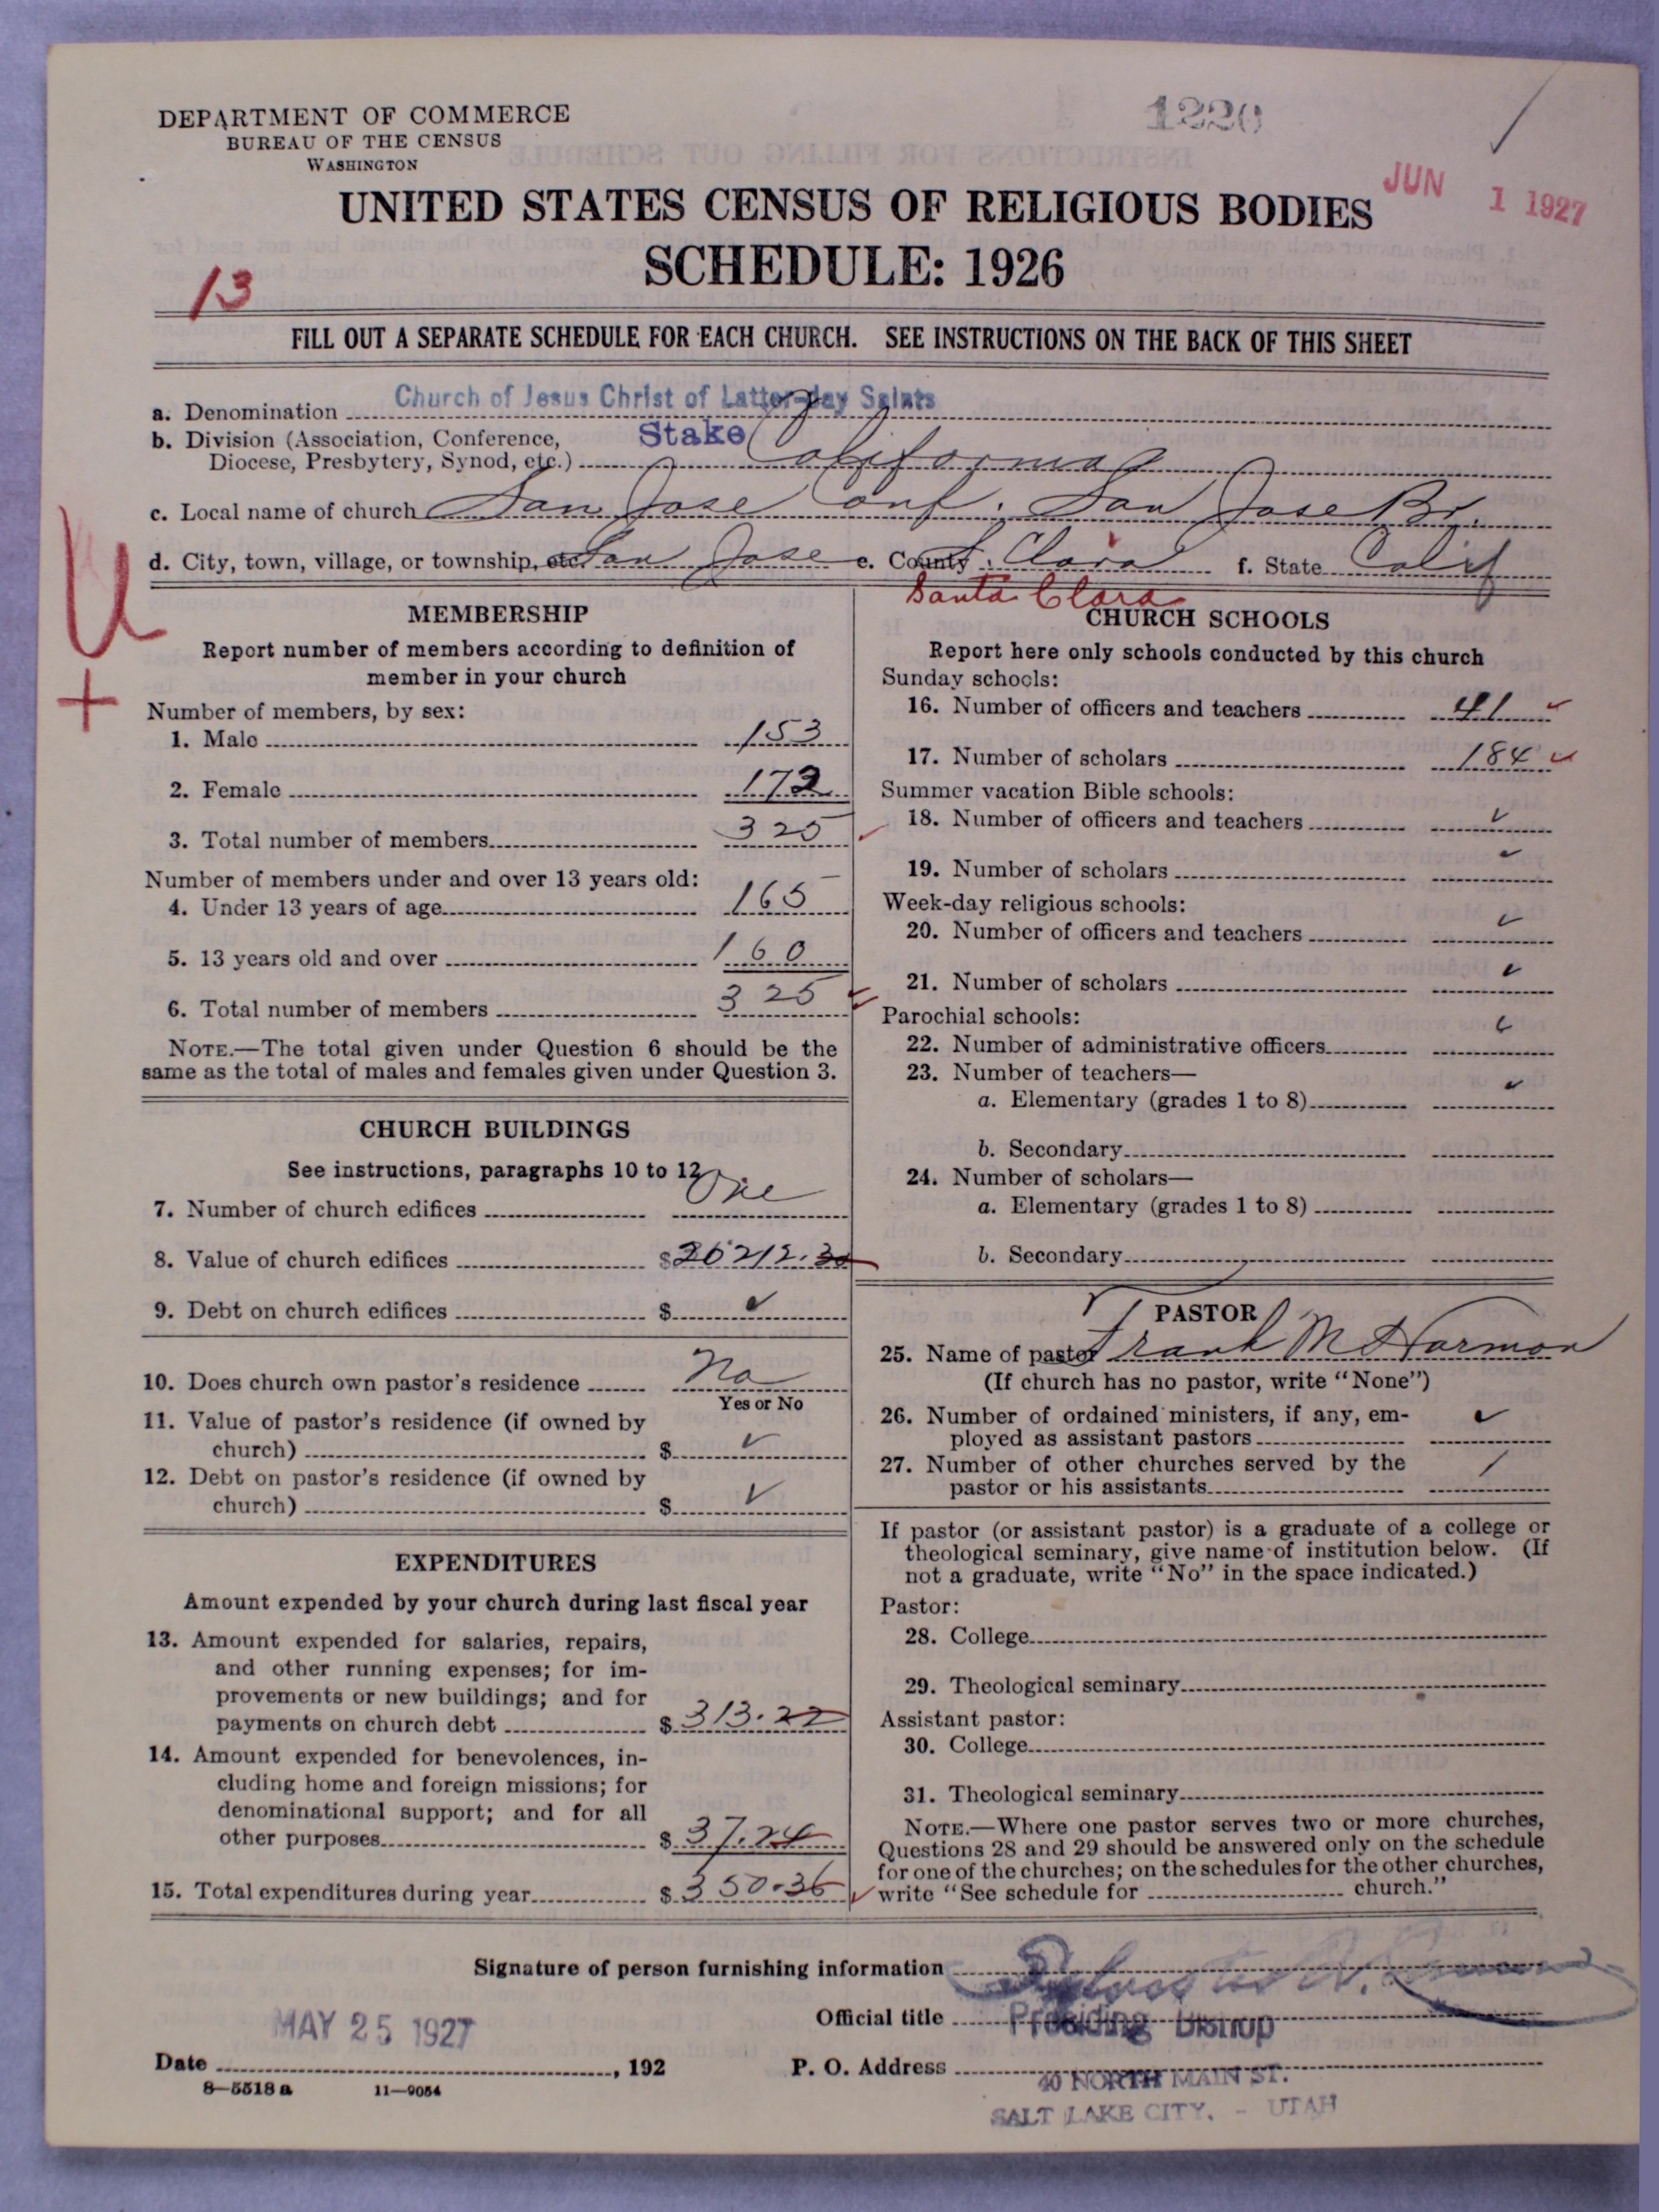 DEPARTMENT OF COMMERCE
BUREAU OF THE CENSUS
WASHINGTON
1220
JUN 1 1927
UNITED STATES CENSUS OF RELIGIOUS BODIES
SCHEDULE: 1926
13
FILL OUT A SEPARATE SCHEDULE FOR EACH CHURCH. SEE INSTRUCTIONS ON THE BACK OF THIS SHEET
a. Denomination Church of Jesus Christ of Latter-day Saints
b. Division (Association, Conference, Stake California
Diocese, Presbytery, Synod, etc.)
c. Local name of church San Jose Conf. San Jose Br.
d. City, town, village, or township, etc. San Jose e. County S. Clara f. State Calif
Santa Clara
U
+
MEMBERSHIP
Report number of members according to definition of
member in your church
Number of members, by sex:
1. Male 153
2. Female 172
3. Total number of members 325
Number of members under and over 13 years old:
4. Under 13 years of age 165
5. 13 years old and over 160
6. Total number of members 325
NOTE.—The total given under Question 6 should be the
same as the total of males and females given under Question 3.
CHURCH BUILDINGS
See instructions, paragraphs 10 to 12
7. Number of church edifices One
8. Value of church edifices $ 26212.30
9. Debt on church edifices $ ✓
10. Does church own pastor's residence No
Yes or No
11. Value of pastor's residence (if owned by
church) $ ✓
12. Debt on pastor's residence (if owned by
church) $ ✓
EXPENDITURES
Amount expended by your church during last fiscal year
13. Amount expended for salaries, repairs,
and other running expenses; for im-
provements or new buildings; and for
payments on church debt $ 313.22
14. Amount expended for benevolences, in-
cluding home and foreign missions; for
denominational support; and for all
other purposes $ 37.24
15. Total expenditures during year $ 350.36
CHURCH SCHOOLS
Report here only schools conducted by this church
Sunday schools:
16. Number of officers and teachers 41
17. Number of scholars 184
Summer vacation Bible schools:
18. Number of officers and teachers ✓
19. Number of scholars ✓
Week-day religious schools:
20. Number of officers and teachers ✓
21. Number of scholars ✓
Parochial schools:
22. Number of administrative officers ✓
23. Number of teachers—
a. Elementary (grades 1 to 8) ✓
b. Secondary
24. Number of scholars—
a. Elementary (grades 1 to 8)
b. Secondary
PASTOR
25. Name of pastor Frank M Harmon
(If church has no pastor, write "None")
26. Number of ordained ministers, if any, em-
ployed as assistant pastors ✓
27. Number of other churches served by the
pastor or his assistants 1
If pastor (or assistant pastor) is a graduate of a college or
theological seminary, give name of institution below. (If
not a graduate, write "No" in the space indicated.)
Pastor:
28. College
29. Theological seminary
Assistant pastor:
30. College
31. Theological seminary
NOTE.—Where one pastor serves two or more churches,
Questions 28 and 29 should be answered only on the schedule
for one of the churches; on the schedules for the other churches,
write "See schedule for church."
Signature of person furnishing information
Official title Presiding Bishop
MAY 25 1927
Date , 192
P. O. Address 40 NORTH MAIN ST.
SALT LAKE CITY, - UTAH
8—5518 a 11—9054